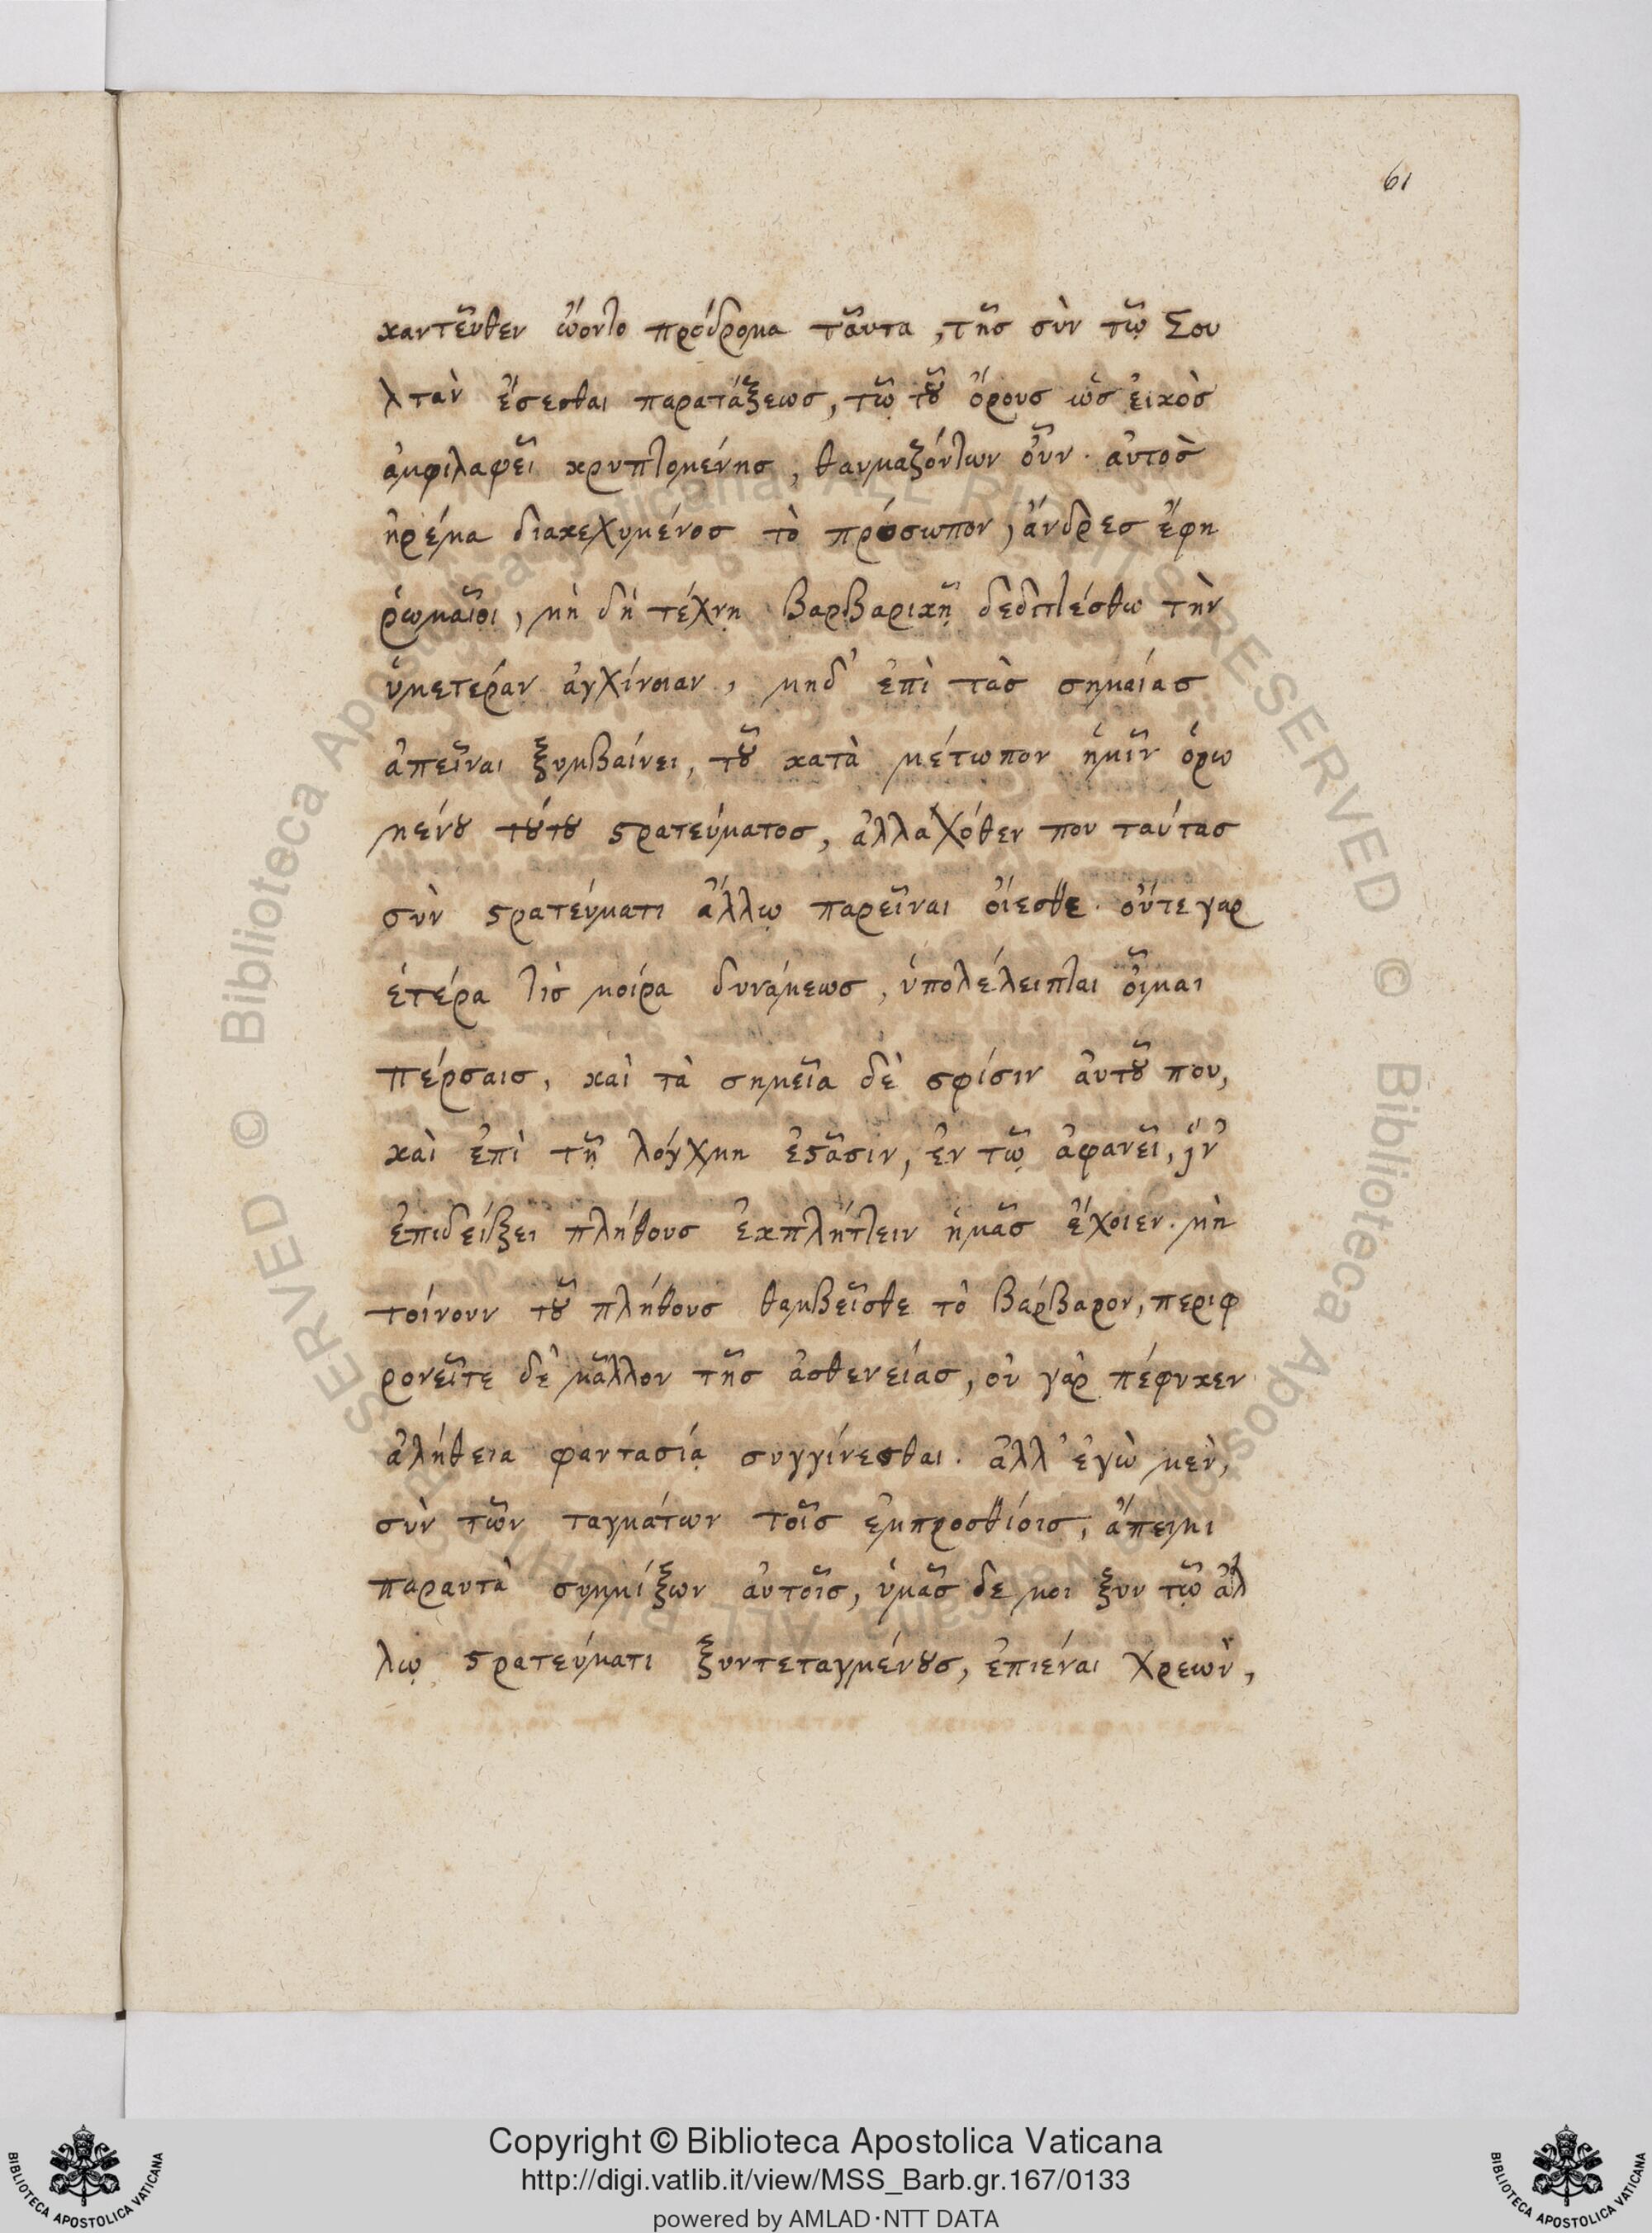 61
κἀντεῦθεν ὤοντο πρόδρομα ταῦτα, τῆς σὺν τῷ Σου
λτὰν ἔσεσθαι παρατάξεως, τῷ τοῦ ὄρους ὡς εἰκὸς
ἀμφιλαφεῖ κρυπτομένης, θαυμαζόντων οὖν. αὐτὸς
ἠρέμα διακεχυμένος τὸ πρόσωπον, ἄνδρες ἔφη
ῥωμαῖοι, μὴ δὴ τέχνῃ βαρβαρικῇ δεδιττέσθω τὴν
ὑμετέραν ἀγχίνοιαν, μηδ' ἐπὶ τὰς σημαίας
ἀπεῖναι ξυμβαίνει, τοῦ κατὰ μέτωπον ἡμῖν ὁρω
μένου τούτου στρατεύματος, ἀλλαχόθεν που ταύτας
σὺν στρατεύματι ἄλλῳ παρεῖναι οἴεσθε. οὔτε γαρ
ἑτέρα τὶς μοίρα δυνάμεως, ὑπολέλειπται οἶμαι
πέρσαις, καὶ τὰ σημεῖα δὲ σφίσιν αὐτοῦ που,
καὶ ἐπὶ τῇ λόγχμη ἑστᾶσιν, ἐν τῷ ἀφανεῖ, ἵν'
ἐπιδείξει πλήθους ἐκπλήττειν ἡμᾶς ἔχοιεν. μὴ
τοίνουν τοῦ πλήθους θαμβεῖσθε τὸ βάρβαρον, περιφ
ρονεῖτε δὲ μᾶλλον τῆς ἀσθενείας, οὐ γὰρ πέφυκεν
ἀλήθεια φαντασίᾳ συγγίνεσθαι. ἀλλ' ἐγὼ μὲν,
σὺν τῶν ταγμάτων τοῖς ἐμπροσθίοις, ἄπειμι
παραυτὰ συμμίξων αὐτοῖς, ὑμᾶς δε μοι ξυν τῷ ἄλ
λῳ στρατεύματι ξυντεταγμένους, ἐπιέναι χρεὼν,
Copyright © Biblioteca Apostolica Vaticana
http://digi.vatlib.it/view/MSS_Barb.gr.167/0133
powered by AMLAD·NTT DATA